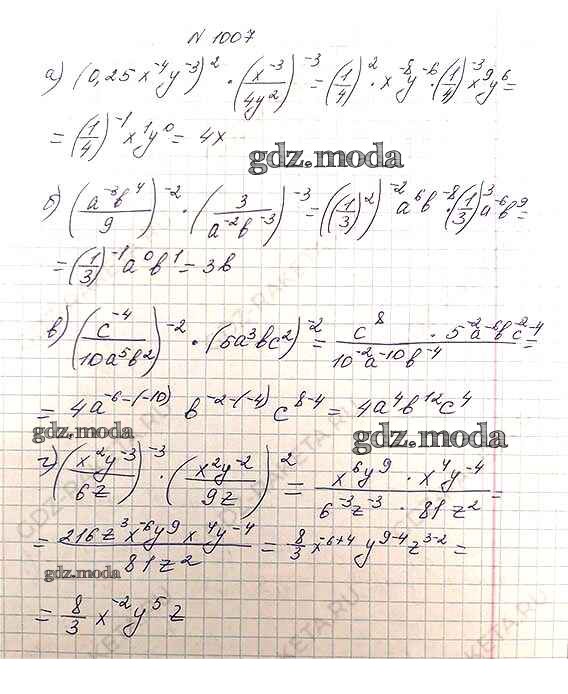 N 1007
а) (0,25x⁻⁴y⁻³)² · (x⁻³/4y²)⁻³ = (1/4)² · x⁻⁸y⁻⁶ · (1/4)⁻³x⁹y⁶ =
= (1/4)⁻¹x¹y⁰ = 4x
gdz.moda
б) (a⁻³b⁴/9)⁻² · (3/a⁻²b⁻³)⁻³ = ((1/3)²)⁻² a⁶b⁻⁸ · (1/3)³a⁻⁶b⁹ =
= (1/3)⁻¹a⁰b¹ = 3b
в) (c⁻⁴/10a⁵b²)⁻² · (5a³bc²)⁻² = c⁸ · 5⁻²a⁻⁶b⁻²c⁻⁴/10⁻²a⁻¹⁰b⁻⁴ =
= 4a⁻⁶⁻⁽⁻¹⁰⁾ b⁻²⁻⁽⁻⁴⁾ c⁸⁻⁴ = 4a⁴b¹²c⁴
gdz.moda gdz.moda
г) (x²y⁻³/6z)⁻³ · (x²y⁻²/9z)² = x⁶y⁹ · x⁴y⁻⁴/6⁻³z⁻³ · 81z² =
= 216z³x⁻⁶y⁹x⁴y⁻⁴/81z² = 8/3 x⁻⁶⁺⁴ y⁹⁻⁴z³⁻² =
gdz.moda
= 8/3 x⁻²y⁵z